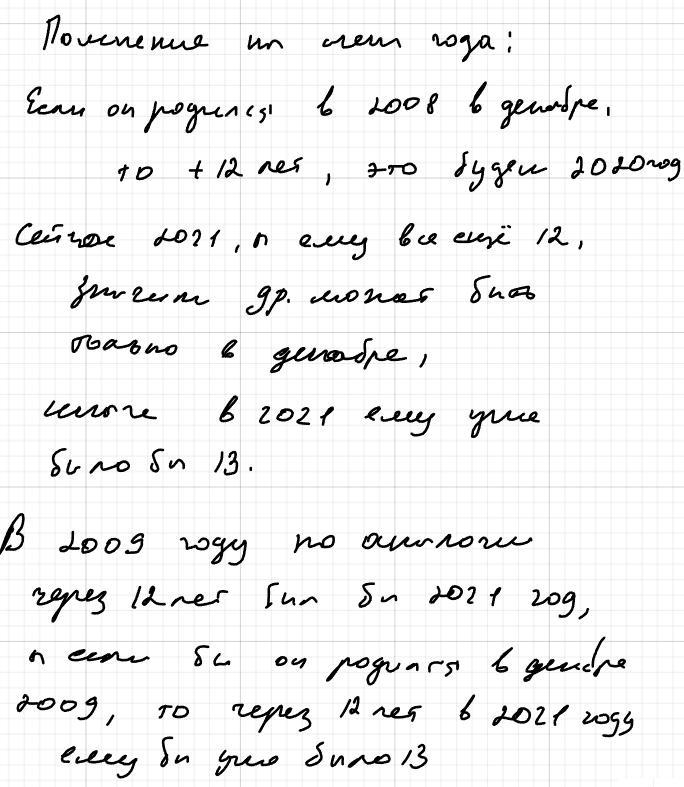 Пояснение на счёт года:
Если он родился в 2008 в декабре,
то +12 лет, это будет 2020 год
Сейчас 2021, а ему все ещё 12,
значит др. может быть
только в декабре,
иначе в 2021 ему уже
было бы 13.
В 2009 году по аналогии
через 12 лет был бы 2021 год,
а если бы он родился в декабре
2009, то через 12 лет в 2021 году
ему бы уже было 13